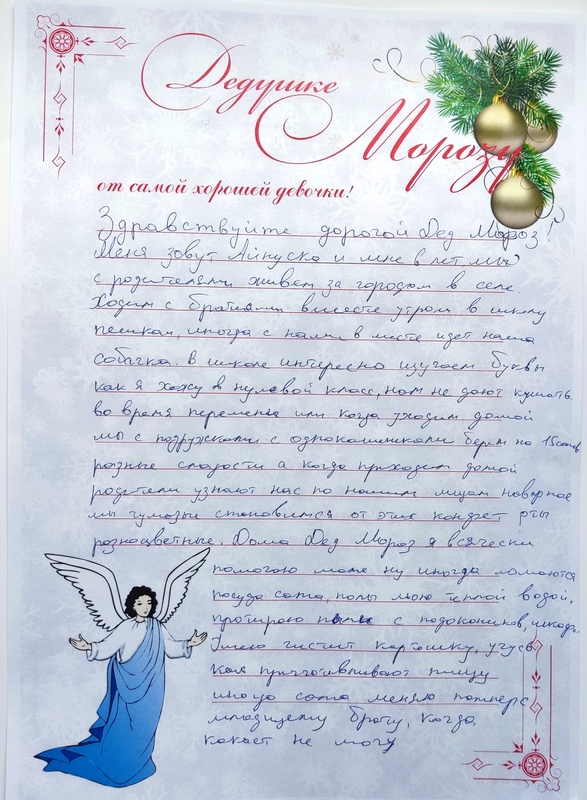 Дедушке
Морозу
от самой хорошей девочки!
Здравствуйте дорогой Дед Мороз!
Меня зовут и мне 6 лет мы
с родителями живем за городом в селе.
Ходим с братиями вместе утром в школу
пешкам, иногда с нами в месте идет наша
собачка. в школе интересно изучаем буквы
как я хожу в нулевой класс, нам не дают кушать
во время перемены или когда уходим домой
мы с подружками с однокашниками берем на 15сомов
разные сладости а когда приходим домой
родители узнают нас по нашим лицам наверное
мы чумазые становимся от этих конфет рты
разноцветные. Дома Дед Мороз я всячески
помогаю маме ну иногда ломаются
посуда сама, полы мою теплой водой,
протираю с подоконников,
Умею чистит картошку,
как приготавливают пищу
иногда сама меняю памперс
младщему брату, когда
какает не могу